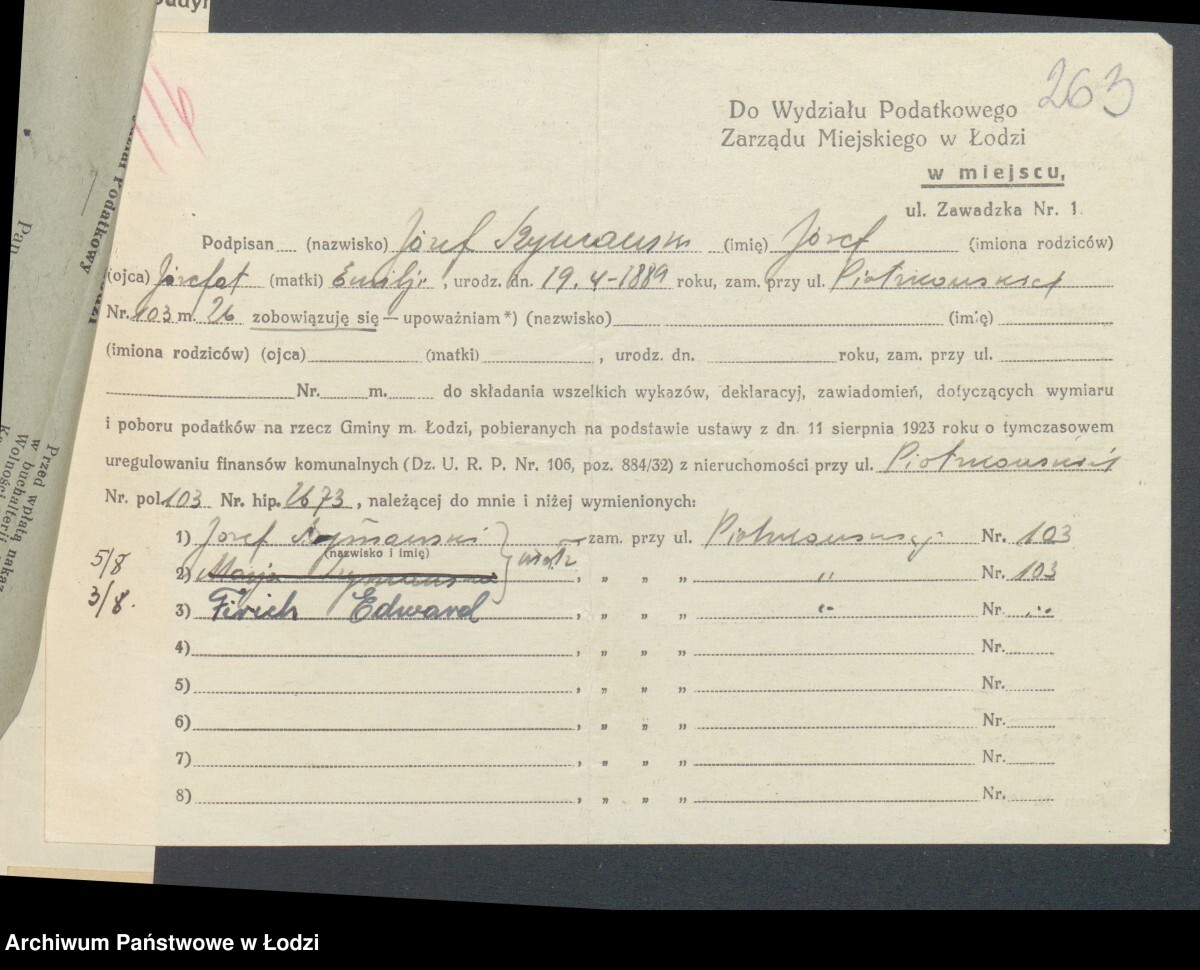 263
116
Do Wydziału Podatkowego
Zarządu Miejskiego w Łodzi
w miejscu,
ul. Zawadzka Nr. 1.
Podpisan (nazwisko) Józef Szymański (imię) Józef (imiona rodziców)
(ojca) Józefat (matki) Emilja, urodz. dn. 19.4-1889 roku, zam. przy ul. Piotrkowskiej
Nr. 103 m. 26 zobowiązuję się — upoważniam *) (nazwisko) (imię)
(imiona rodziców) (ojca) (matki) , urodz. dn. roku, zam. przy ul.
Nr. m. do składania wszelkich wykazów, deklaracyj, zawiadomień, dotyczących wymiaru
i poboru podatków na rzecz Gminy m. Łodzi, pobieranych na podstawie ustawy z dn. 11 sierpnia 1923 roku o tymczasowem
uregulowaniu finansów komunalnych (Dz. U. R. P. Nr. 106, poz. 884/32) z nieruchomości przy ul. Piotrkowskiej
Nr. pol 103 Nr. hip. 2673, należącej do mnie i niżej wymienionych:
1) Józef Szymański zam. przy ul. Piotrkowskiej Nr. 103
(nazwisko i imię)
5/8 2) Marja Szymańska , „ „ „ „ Nr. 103
3/8. 3) Firich Edward , „ „ „ „ Nr. „
4) , „ „ „ Nr.
5) , „ „ „ Nr.
6) , „ „ „ Nr.
7) , „ „ „ Nr.
8) , „ „ „ Nr.
Podatkowy
Pan
Przed wpłatą nakaz
w buchalterii
Wolności
Archiwum Państwowe w Łodzi